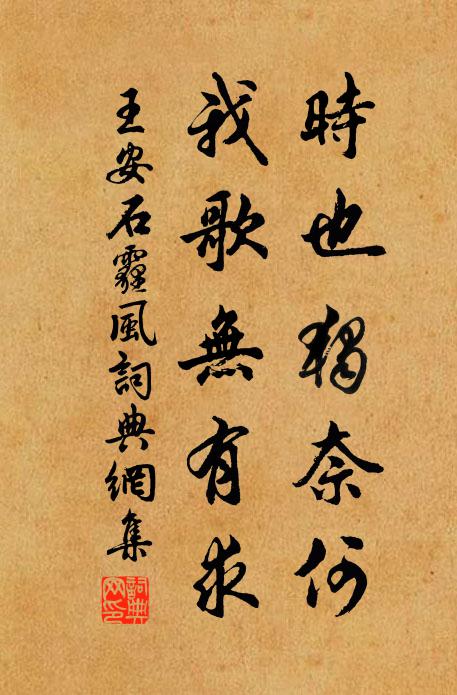 時也獨奈何
我歌無有求
王安石霾風詞典網集
詞典
网印